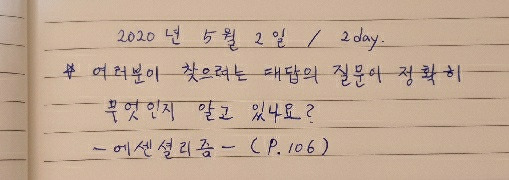 2020년 5월 2일 / 2day.
* 여러분이 찾으려는 대답의 질문이 정확히
무엇인지 알고 있나요?
- 에센셜리즘 - (P.106)